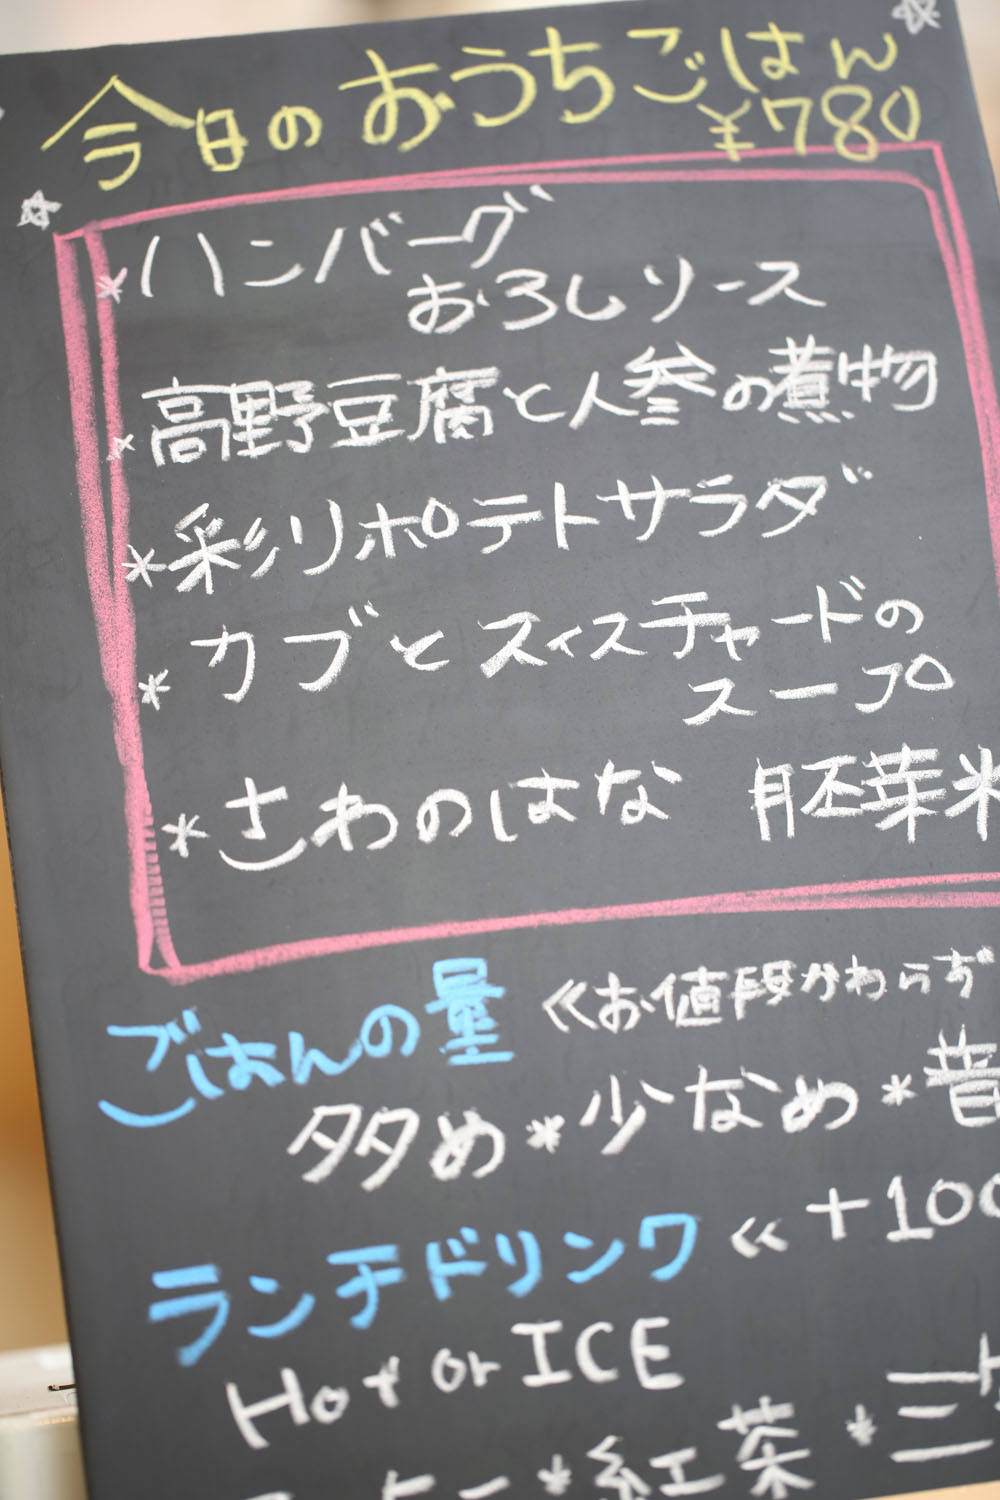 今日のおうちごはん
¥780
*ハンバーグ
おろしソース
*高野豆腐と人参の煮物
*彩りポテトサラダ
*カブとスイスチャードの
スープ
*さわのはな 胚芽米
ごはんの量 《お値段かわらず
多め*少なめ*
ランチドリンク 《+100
Hot or ICE
*紅茶*